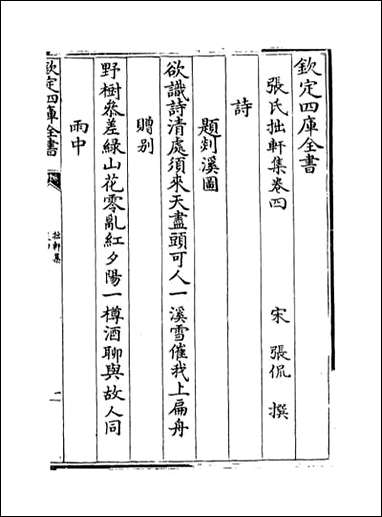 欽定四庫全書
張氏拙軒集卷四
宋 張侃 撰
詩
題剡溪圖
欲識詩清處須來天盡頭可人一溪雪催我上扁舟
贈别
野樹叅差綠山花零亂紅夕陽一樽酒聊與故人同
雨中
欽定四庫全書
拙軒集